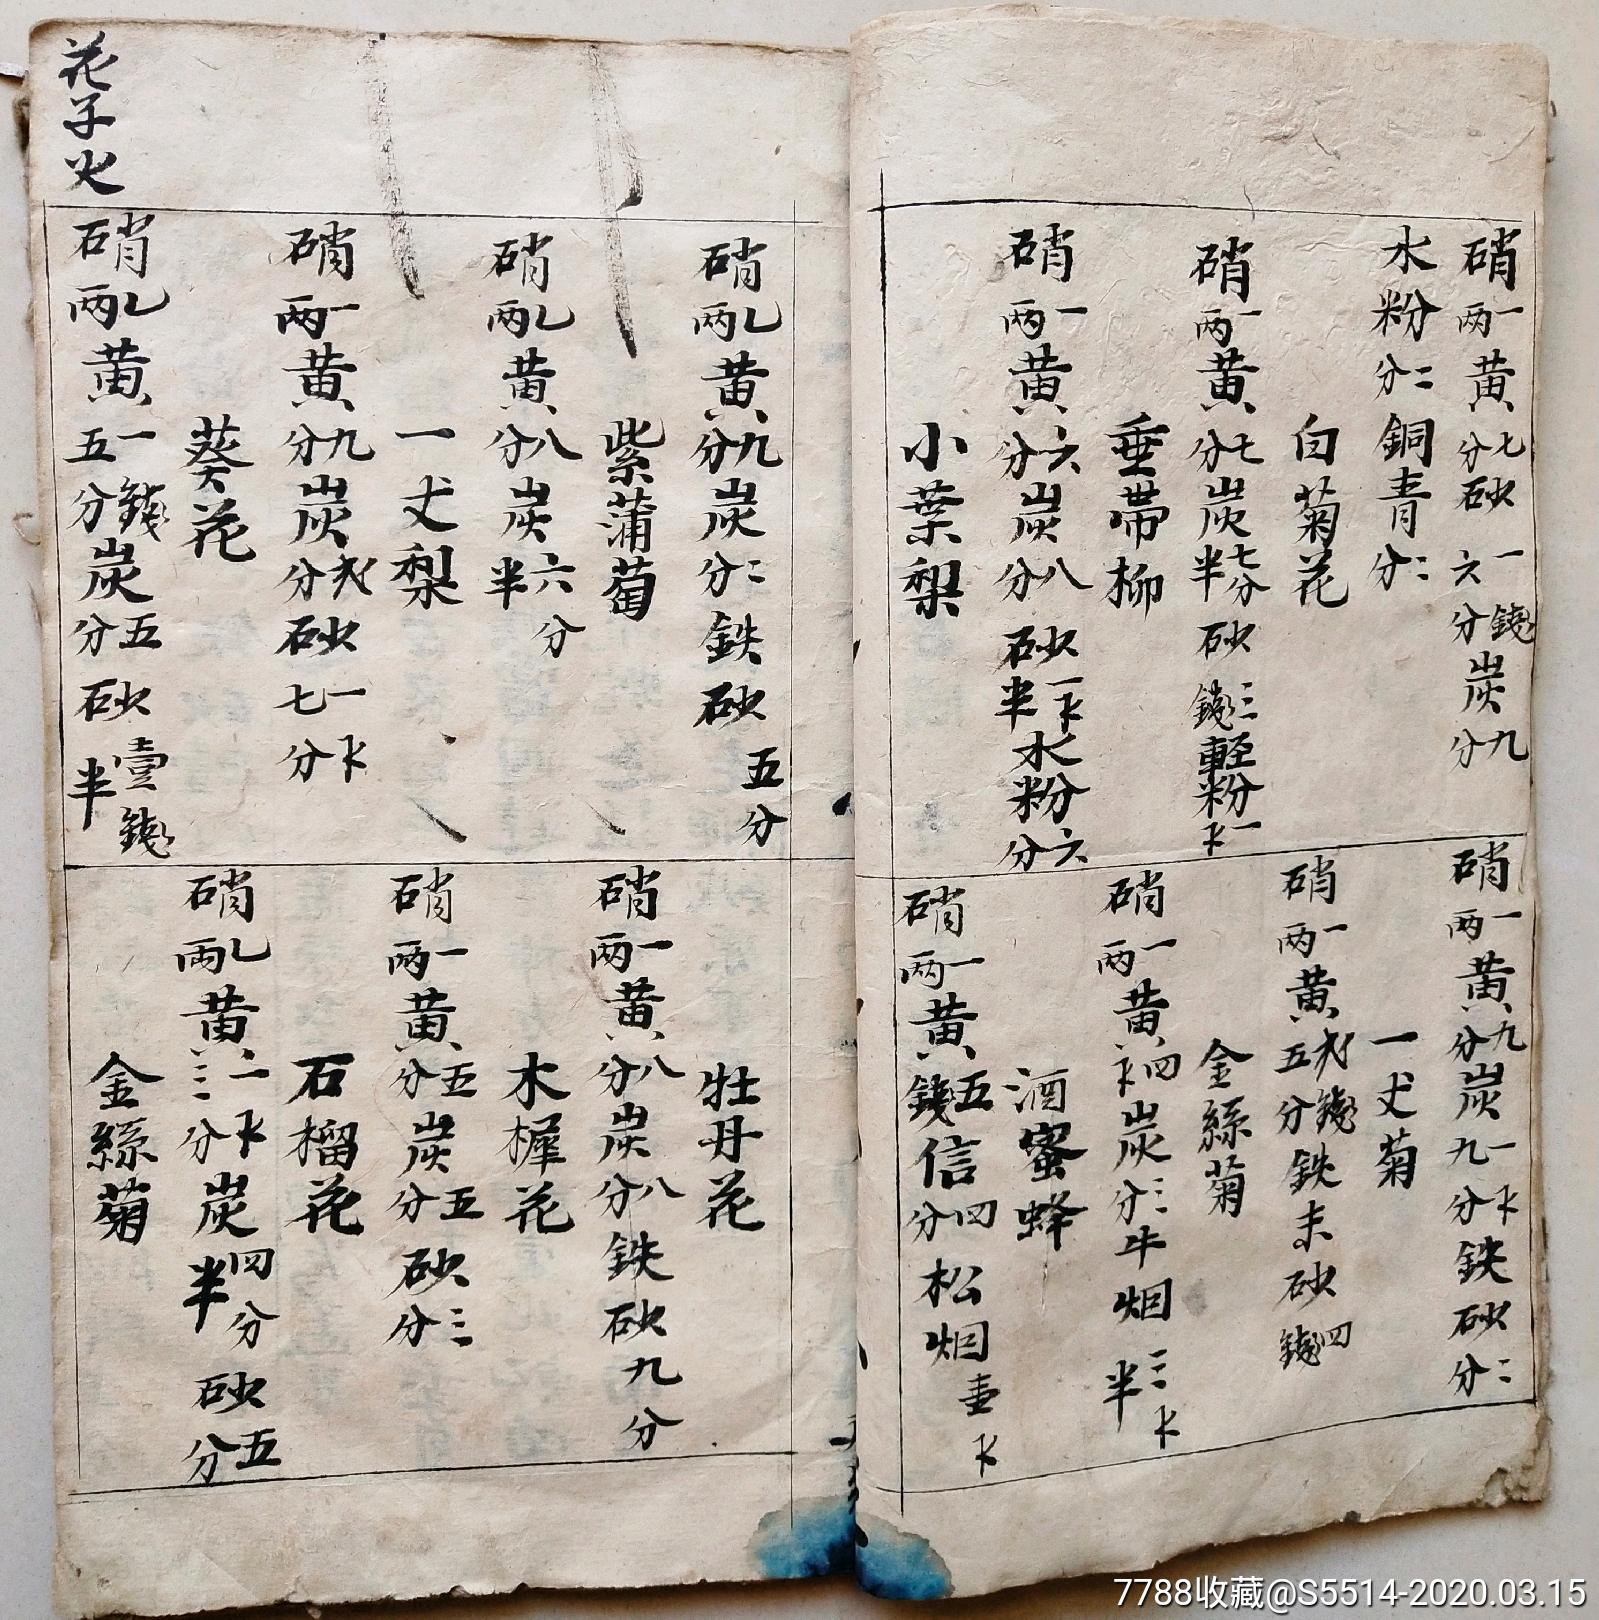 硝一两黄七分砂一錢六分炭九分
水粉二分銅青二分
白菊花
硝一两黄七分炭七分半砂三錢軽粉一卞
垂帶柳
硝一两黄六分炭八分砂一卞半水粉六分
小葉梨
硝一两黄九分炭一卞九分鉄砂二分
一丈菊
硝一两黄弍錢五分鉄末砂四錢
金絲菊
硝一两黄四卞炭三分牛烟三卞半
酒蜜蜂
硝一两黄五錢信四分松烟壹卞
硝乚两黄九分炭二分鉄砂五分
紫蒲萄
硝乚两黄八分炭六分半
一丈梨
硝一两黄九分炭弍分砂一卞七分
葵花
硝乚两黄一錢五分炭五分砂壹錢半
花子火
牡丹花
硝一两黄八分炭八分鉄砂九分
木樨花
硝一两黄五分炭五分砂三分
石榴花
硝乚两黄一卞三分炭四分半砂五分
金絲菊
7788收藏@S5514-2020.03.15